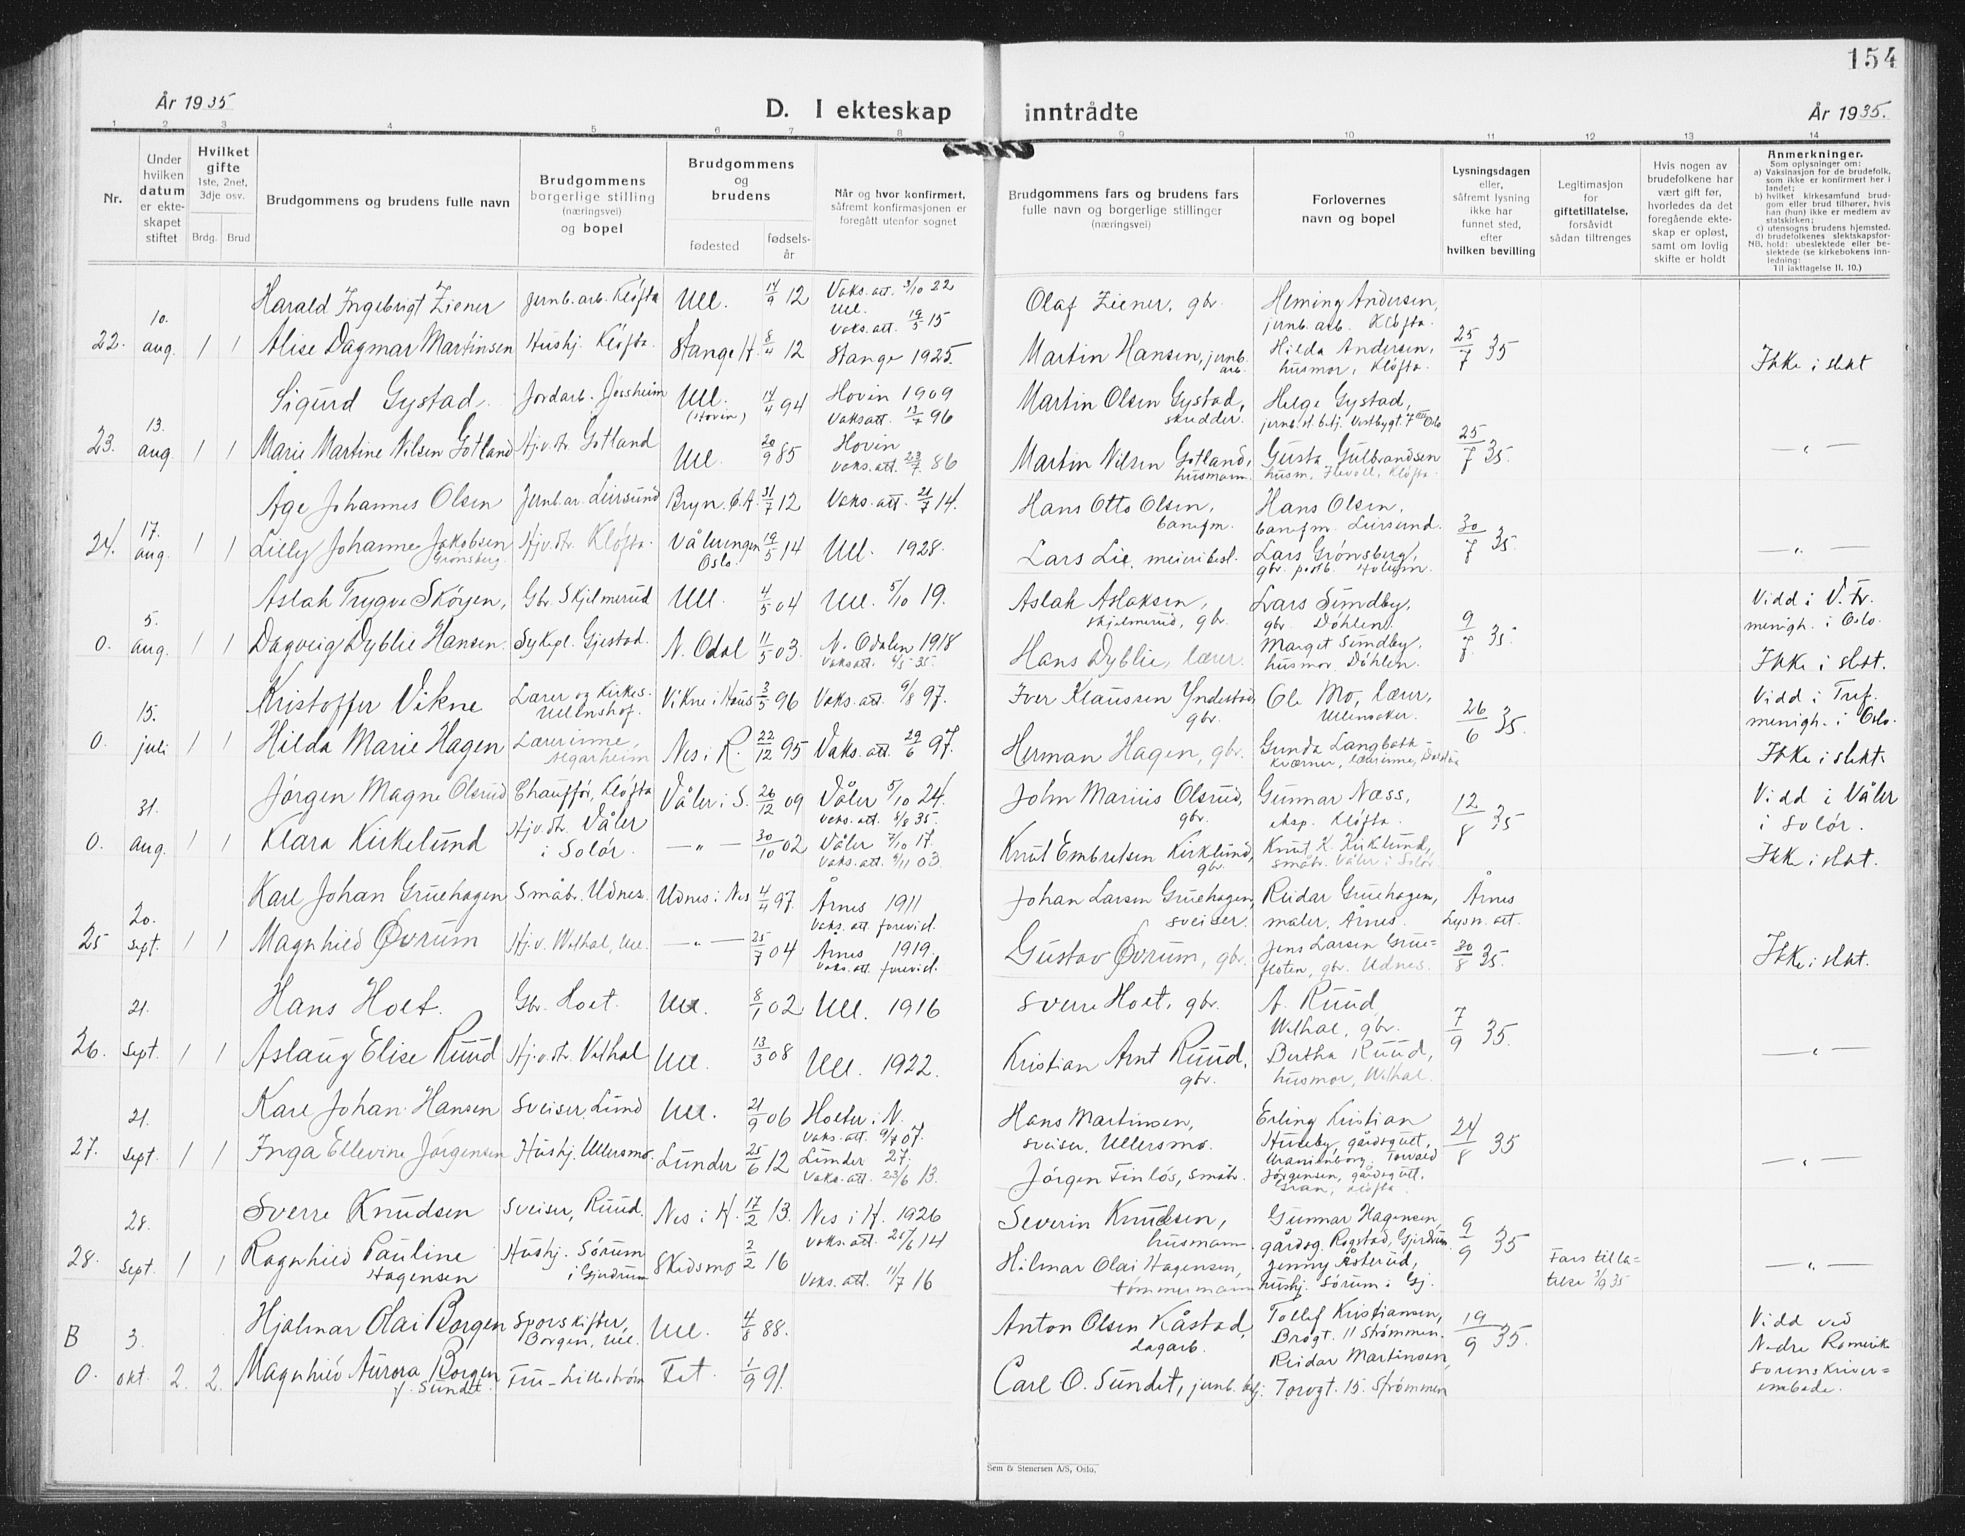 154
År 1935
D. I ekteskap inntrådte
År 1935.
1 2 3 4 5 6 7 8 9 10 11 12 13 14
Nr.
Under hvilken datum er ekte-skapet stiftet
Hvilket gifte 1ste, 2net, 3dje osv.
Brdg. Brud
Brudgommens og brudens fulle navn
Brudgommens borgerlige stilling (næringsvei) og bopel
Brudgommens og brudens
fødested
fødsels-år
Når og hvor konfirmert, såfremt konfirmasjonen er foregått utenfor sognet
Brudgommens fars og brudens fars fulle navn og borgerlige stillinger (næringsvei)
Forlovernes navn og bopel
Lysningsdagen eller, såfremt lysning ikke har funnet sted, efter hvilken bevilling
Legitimasjon for giftetillatelse, forsåvidt sådan tiltrenges
Hvis nogen av brudefolkene har vært gift før, hvorledes da det foregående ekte-skap er opløst, samt om lovlig skifte er holdt
Anmerkninger.
Som oplysninger om:
a) Vaksinasjon for de brudefolk, som ikke er konfirmert her i landet;
b) hvilket kirkesamfund brud-gom eller brud tilhører, hvis han (hun) ikke er medlem av statskirken;
c) utensogns brudens hjemsted.
d) brudefolkenes slektskapsfor-
NB. hold: ubeslektede eller be-slektede (se kirkebokens inn-ledning:
Til iakttagelse II. 10.)
Harald Ingebrigt Ziener jernb.arb. Kløfta Ull. 14/9 12 Vaks. att. 3/10 22 Ull. Olaf Ziener, gbr. Heming Andersen, jernb. arb. Kløfta.
22. 10. aug. 1 1 Alise Dagmar Martinsen Hushj. Kløfta. Stange H. 8/4 12 Vaks. att. 19/5 15 Stange 1925. Martin Hansen, jernb. arb. Hilda Andersen, husmor, Kløfta. 25/7 35 Ikke i slekt
Sigurd Gystad Jordarb. Jessheim Ull. (Hovin) 14/4 94 Hovin 1909 Vaks att. 13/7 96 Martin Olsen Gystad, Helge Gystad,
23. 13. aug. 1 1 Marie Martine Nilsen Gotland Hj.v. dr. Gotland Ull. 20/9 85 Hovin Vaks. att. 23/7 86 Martin Nilsen Gotland, husmann. Gusta Gulbrandsen husm, Kløfta. 25/7 35. — „ —
Åge Johannes Olsen Jernb.ar. Leirsund Bryn. Ø. A. 31/7 12 Vaks. att. 21/7 14. Hans Otto Olsen, banefm. Hans Olsen, banefm. Leirsund.
24. 17. aug. 1 1 Lilly Johanne Jakobsen Grønsberg Hj.v. dr. Kløfta. Vålerengen Oslo. 19/5 14 Ull. 1928. Lars Lie, meieribest. Lars Grønsberg, gbr. 30/7 35. — „ —
Aslak Trygve Skøyen, Gbr. Skjelmerud Ull. 4/5 04 Ull. 5/10 19. Aslak Aslaksen, Skjelmerud, gbr. Lars Sundby, gbr. Døhlen. Vidd i V. Fr. menigh. i Oslo.
0. 5. aug. 1 1 Dagveig Dyblie Hansen. Sykepl. Gjestad. N. Odal 11/5 03. N. Odalen 1918 Vaks att. 4/5 35. Hans Dyblie, lærer. Marget Sundby, husmor Døhlen. 9/7 35. Ikke i slekt.
Kristoffer Vikne Lærer og Kirkes. Ullenshof. Vikne i Haus 3/5 96 Vaks. att. 9/8 97. Iver Klaussen Yndestad gbr. Ole Mo, lærer, Ullensaker. Vidd i Tref. menigh. i Oslo.
0. 15. juli 1 1 Hilda Marie Hagen Lærerinne, Algarheim Nes i R. 22/12 95 Vaks. att. 29/6 97. Herman Hagen, gbr. Gunda Langbakk-Kværner, lærerinne, 26/6 35. Ikke i slekt.
Jørgen Magne Olsrud Chauffør, Kløfta Våler i S. 26/12 09 Våler 5/10 24. Vaks. att. 8/8 35. John Marius Olsrud, gbr. Gunnar Næss, eksp. Kløfta. Vidd i Våler i Solør.
0. 31. aug. 1 1 Klara Kirkelund Hj.v. dr. Våler i Solør. — „ — 30/10 02 Våler 7/10 17. Vaks. att. 9/11 03 Knut Embretsen Kirklund, gbr. Knut K. Kirklund, småbr. Våler i Solør 12/8 35 Ikke i slekt.
Karl Johan Gruehagen Småbr. Udnes. Udnes i Nes 4/4 97. Årnes 1911 Vaks. att. forevist. Johan Larsen Gruehagen, sveiser. Reidar Gruehagen, maler, Årnes. Årnes Lysn. att.
25 20. sept. 1 1 Magnhild Øvrum Hj.v. Wilhal, Ull. — „ — 25/7 04 Årnes 1919. Vaks. att. forevist. Gustav Øvrum, gbr. Jens Larsen Grue=floten, gbr. Udnes. 30/8 35. Ikke i slekt.
Hans Holt. Gbr. Holt. Ull. 8/1 02 Ull. 1916 Sverre Holt, gbr. A. Ruud Wilhal, gbr.
26. 21. Sept. 1 1 Aslaug Elise Ruud Hj.v. dr. Vilhal Ull. 13/3 08 Ull. 1922. Kristian Arnt Ruud, gbr. Bertha Ruud, husmor, Wilhal. 7/9 35. — „ —
Karl Johan Hansen Sveiser, Lund Ull. 21/9 06 Holter i N. Vaks. att. 9/7 07. Hans Martinsen, sveiser, Ullersmo. Erling Kristian Huseby, gårdsgutt, Uranienborg.
27. 21. sept. 1 1 Inga Ellevine Jørgensen Hushj. Ullersmo. Lunder 25/6 12 Lunder 27. Vaks. att. 23/6 13. Jørgen Finløs, småbr. Torvald Jørgensen, gårdsgutt. Gran, Kløfta. 24/8 35 — „ —
Sverre Knudsen Sveiser, Ruud. Nes i H. 17/2 13. Nes i H. 1926 Vaks. att. 25/6 14 Severin Knudsen, husmann. Gunnar Hagensen, gårdsg. Rogstad, Gjerdrum.
28. 28. Sept. 1 1 Ragnhild Pauline Hagensen Hushj. Sørum i Gjerdrum Skedsmo 2/2 16 Vaks. att. 11/7 16 Hilmar Olai Hagensen, tømmermann Jenny Åsterud, hushj. Sørum i Gj. 9/9 35 Fars tilla=telse 7/9 35 — „ —
Hjalmar Olai Borgen Sporskifter, Borgen, Ull. Ull. 4/8 88. Anton Olsen Kåstad, dagarb. Tollef Kristiansen, Brogt. 11 Strømmen.
B 0. 3. okt. 2. 2. Magnhild Aurora Borgen f. Sundet. Fru - Lillestrøm Fet. 1/9 91. Carl O. Sundet, jernb. betj. Reidar Martinsen, Torvgt. 15. Strømmen 19/9 35. Vidd ved Nedre Romerike Sorenskriver=embede.
Sem & Stenersen A/S, Oslo.